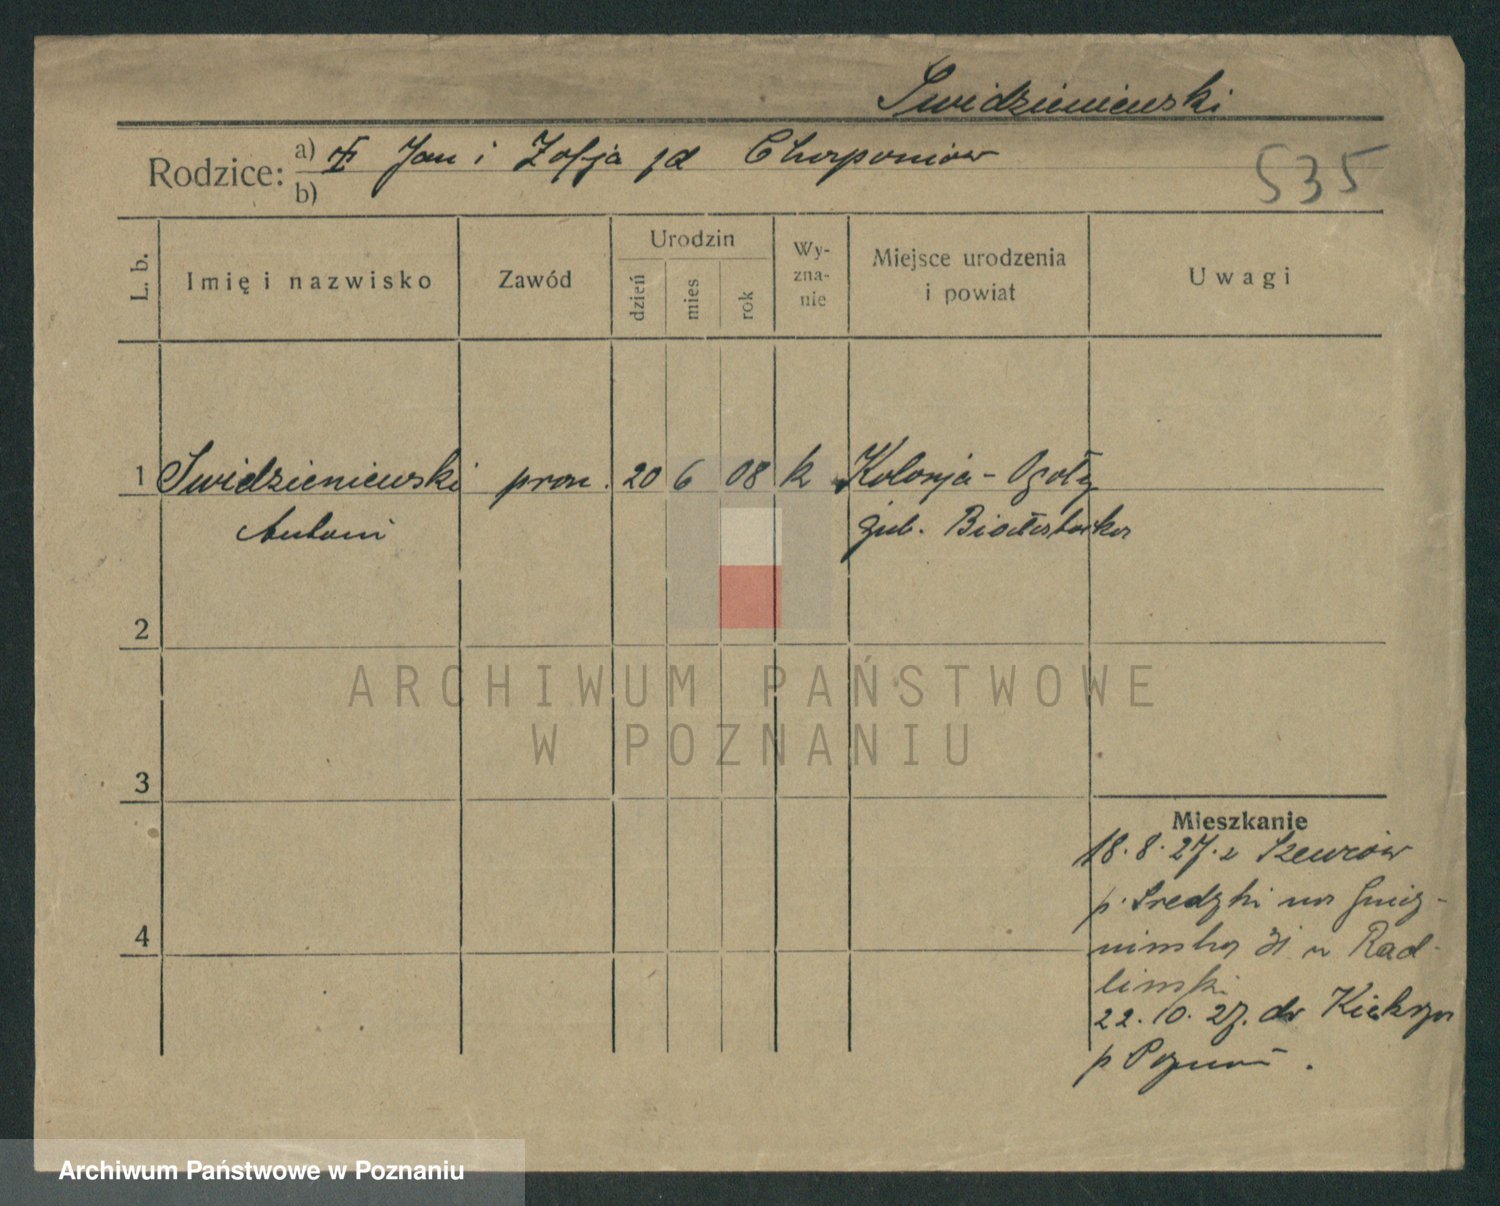 Swidzieniewski
Rodzice: a) Jan i Zofja zd
b)
535
L. b.
Imię i nazwisko
Zawód
Urodzin
dzień
mies
rok
Wy-
zna-
nie
Miejsce urodzenia
i powiat
Uwagi
1 Swidzieniewski 20 6 08 k Kolonja - Ogoły
Antoni gub. Białostocka
2
ARCHIWUM PAŃSTWOWE
W POZNANIU
3
Mieszkanie
18. 8. 27. z
p. na Gniez-
4
nińską 31 u Rad-
limski
22. 10. 27. do Kiekrza
p Poznań.
Archiwum Państwowe w Poznaniu